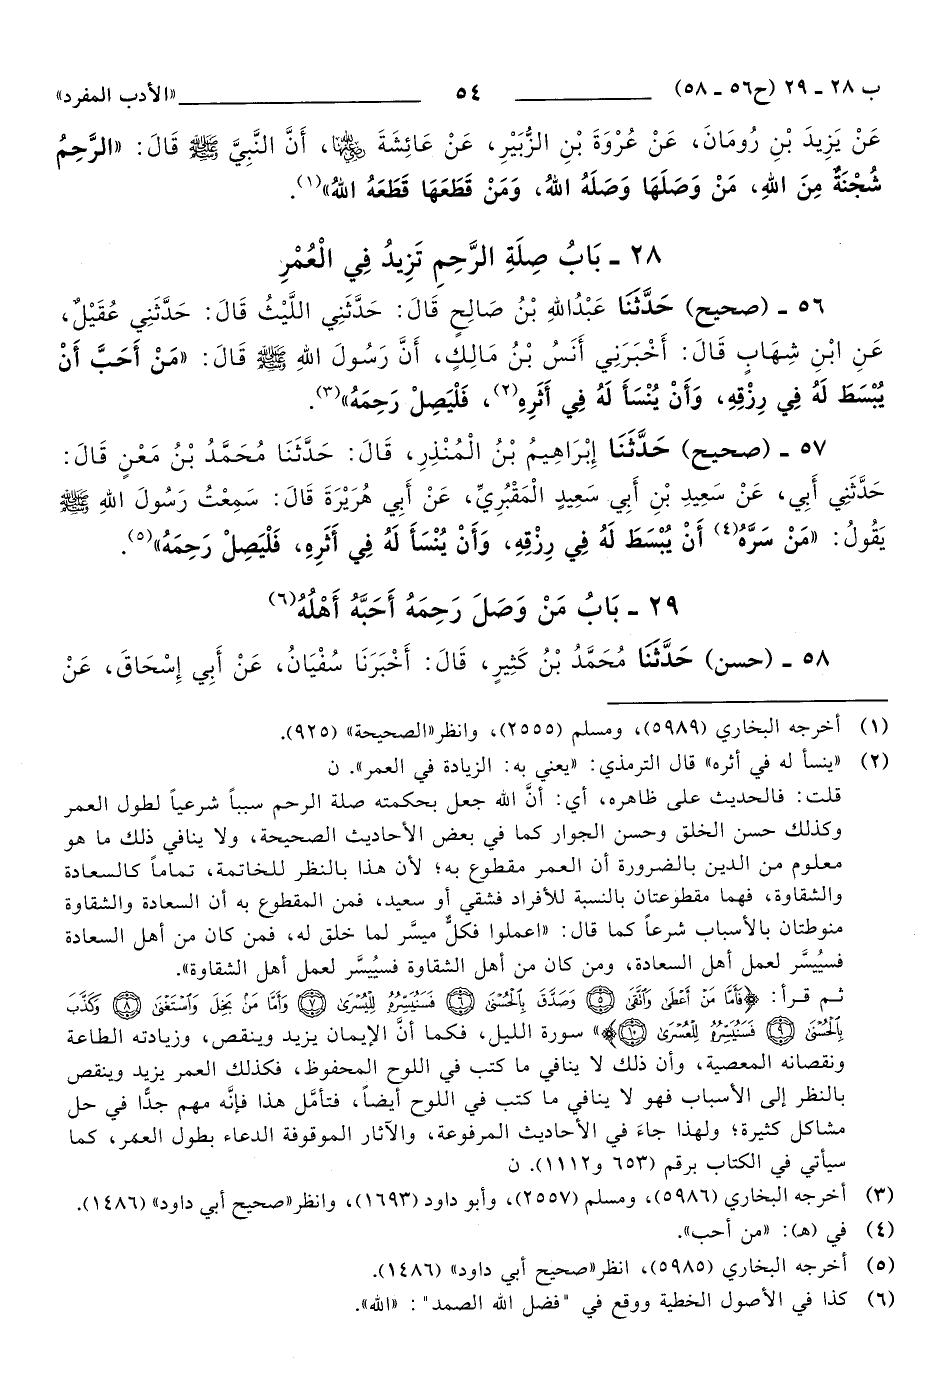 ب ٢٨ ـ ٢٩ (ح٥٦ ـ ٥٨) ٥٤ «الأدب المفرد»
عَنْ يَزِيدَ بْنِ رُومَانَ، عَنْ عُرْوَةَ بْنِ الزُّبَيْرِ، عَنْ عَائِشَةَ رضي الله عنها، أَنَّ النَّبِيَّ ﷺ قَالَ: «الرَّحِمُ
شُجْنَةٌ مِنَ اللهِ، مَنْ وَصَلَهَا وَصَلَهُ اللهُ، وَمَنْ قَطَعَهَا قَطَعَهُ اللهُ»(١).
٢٨ ـ بَابُ صِلَةِ الرَّحِمِ تَزِيدُ فِي الْعُمْرِ
٥٦ ـ (صحيح) حَدَّثَنَا عَبْدُاللهِ بْنُ صَالِحٍ قَالَ: حَدَّثَنِي اللَّيْثُ قَالَ: حَدَّثَنِي عُقَيْلٌ،
عَنِ ابْنِ شِهَابٍ قَالَ: أَخْبَرَنِي أَنَسُ بْنُ مَالِكٍ، أَنَّ رَسُولَ اللهِ ﷺ قَالَ: «مَنْ أَحَبَّ أَنْ
يُبْسَطَ لَهُ فِي رِزْقِهِ، وَأَنْ يُنْسَأَ لَهُ فِي أَثَرِهِ(٢)، فَلْيَصِلْ رَحِمَهُ»(٣).
٥٧ ـ (صحيح) حَدَّثَنَا إِبْرَاهِيمُ بْنُ الْمُنْذِرِ، قَالَ: حَدَّثَنَا مُحَمَّدُ بْنُ مَعْنٍ قَالَ:
حَدَّثَنِي أَبِي، عَنْ سَعِيدِ بْنِ أَبِي سَعِيدٍ الْمَقْبُرِيِّ، عَنْ أَبِي هُرَيْرَةَ قَالَ: سَمِعْتُ رَسُولَ اللهِ ﷺ
يَقُولُ: «مَنْ سَرَّهُ(٤) أَنْ يُبْسَطَ لَهُ فِي رِزْقِهِ، وَأَنْ يُنْسَأَ لَهُ فِي أَثَرِهِ، فَلْيَصِلْ رَحِمَهُ»(٥).
٢٩ ـ بَابُ مَنْ وَصَلَ رَحِمَهُ أَحَبَّهُ أَهْلُهُ(٦)
٥٨ ـ (حسن) حَدَّثَنَا مُحَمَّدُ بْنُ كَثِيرٍ، قَالَ: أَخْبَرَنَا سُفْيَانُ، عَنْ أَبِي إِسْحَاقَ، عَنْ
(١) أخرجه البخاري (٥٩٨٩)، ومسلم (٢٥٥٥)، وانظر«الصحيحة» (٩٢٥).
(٢) «ينسأ له في أثره» قال الترمذي: «يعني به: الزيادة في العمر». ن
قلت: فالحديث على ظاهره، أي: أنَّ الله جعل بحكمته صلة الرحم سبباً شرعياً لطول العمر
وكذلك حسن الخلق وحسن الجوار كما في بعض الأحاديث الصحيحة، ولا ينافي ذلك ما هو
معلوم من الدين بالضرورة أن العمر مقطوع به؛ لأن هذا بالنظر للخاتمة، تماماً كالسعادة
والشقاوة، فهما مقطوعتان بالنسبة للأفراد فشقي أو سعيد، فمن المقطوع به أن السعادة والشقاوة
منوطتان بالأسباب شرعاً كما قال: «اعملوا فكلٌّ ميسَّر لما خلق له، فمن كان من أهل السعادة
فسيُيسَّر لعمل أهل السعادة، ومن كان من أهل الشقاوة فسيُيسَّر لعمل أهل الشقاوة».
ثم قرأ: ﴿فَأَمَّا مَنْ أَعْطَىٰ وَٱتَّقَىٰ ٥ وَصَدَّقَ بِٱلْحُسْنَىٰ ٦ فَسَنُيَسِّرُهُۥ لِلْيُسْرَىٰ ٧ وَأَمَّا مَنۢ بَخِلَ وَٱسْتَغْنَىٰ ٨ وَكَذَّبَ
بِٱلْحُسْنَىٰ ٩ فَسَنُيَسِّرُهُۥ لِلْعُسْرَىٰ ١٠﴾» سورة الليل، فكما أنَّ الإيمان يزيد وينقص، وزيادته الطاعة
ونقصانه المعصية، وأن ذلك لا ينافي ما كتب في اللوح المحفوظ، فكذلك العمر يزيد وينقص
بالنظر إلى الأسباب فهو لا ينافي ما كتب في اللوح أيضاً، فتأمَّل هذا فإنَّه مهم جدًّا في حل
مشاكل كثيرة؛ ولهذا جاءَ في الأحاديث المرفوعة، والآثار الموقوفة الدعاء بطول العمُر، كما
سيأتي في الكتاب برقم (٦٥٣ و١١١٢). ن
(٣) أخرجه البخاري (٥٩٨٦)، ومسلم (٢٥٥٧)، وأبو داود (١٦٩٣)، وانظر«صحيح أبي داود» (١٤٨٦).
(٤) في (هـ): «من أحب».
(٥) أخرجه البخاري (٥٩٨٥)، انظر«صحيح أبي داود» (١٤٨٦).
(٦) كذا في الأصول الخطية ووقع في "فضل الله الصمد" : «الله».